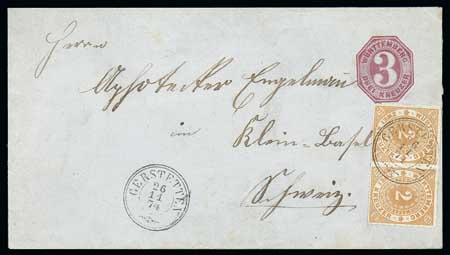 Herrn
WÜRTTEMBERG
3
DREI KREUZER
Aphotecker Engelmann
im
Klein-Basel
Schweiz.
GERSTETTEN
26
11
74
2
2